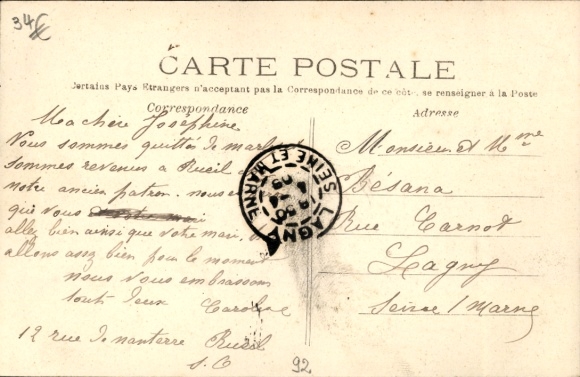 34
CARTE POSTALE
Certains Pays Etrangers n'acceptant pas la Correspondance de ce côté, se renseigner à la Poste
Correspondance
Adresse
Ma chère Joséphine
Nous sommes quittés de
sommes revenus a Rueil
notre ancien patron. nous
que vous
allez bien ainsi que votre mari,
allons assez bien pour le moment
nous vous embrassons
tout deux Caroline
12 rue de nanterre Rueil
S. O
Monsieur et Mme
Bésana
Rue Carnot
Lagny
Seine / Marne
LAGNY
SEINE ET MARNE
92